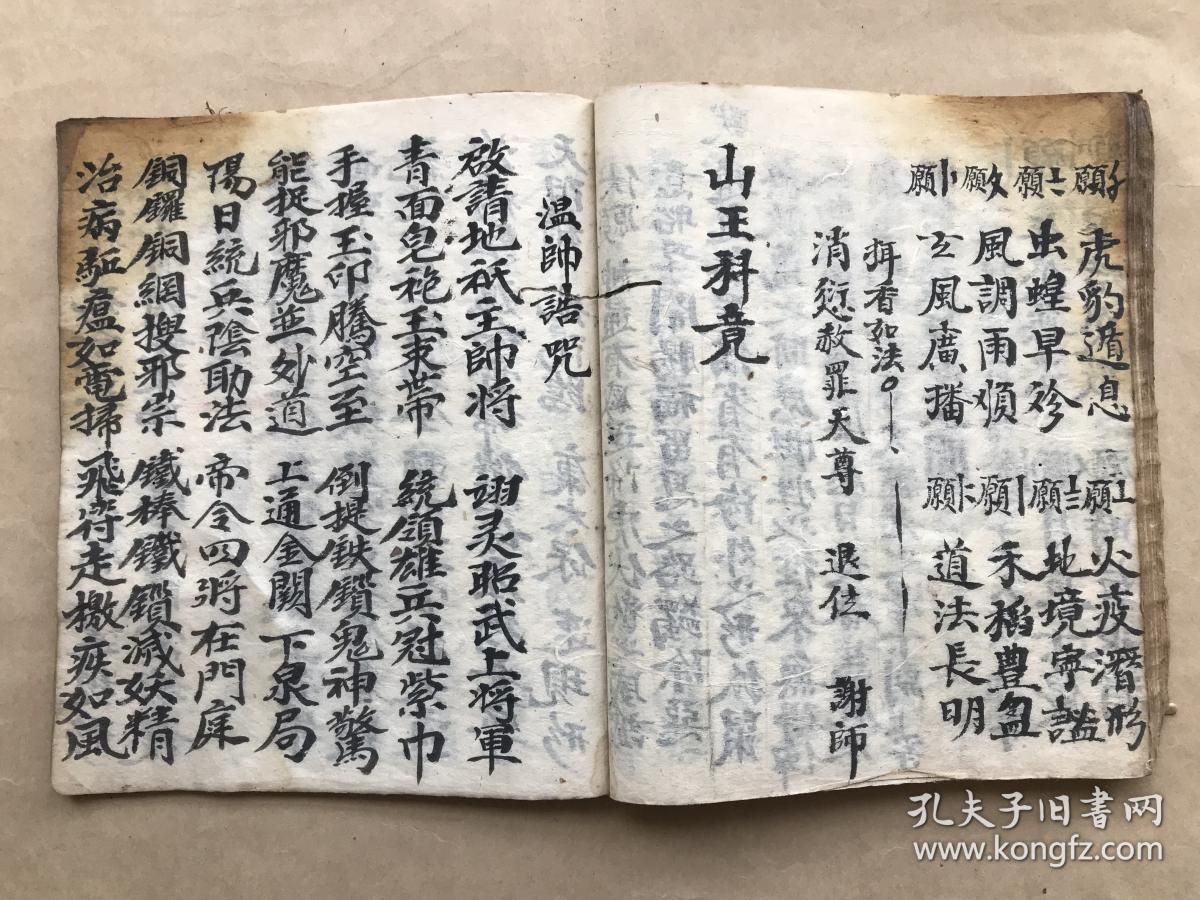 願 虎豹遁息 願 火疫潛形
願 虫蝗早殄 願 地境寧謐
願 風調雨順 願 禾稻豊盈
願 玄風廣播 願 道法長明
拜香如法
消愆赦罪天尊 退位 謝師
山王科竟
溫帥誥咒
啟請地祇主帥將 翊灵昭武上将軍
青面皂袍玉束带 統領雄兵冠紫巾
手握玉印騰空至 倒提鉄鎖鬼神驚
能捉邪魔並外道 上通金闕下泉局
陽日統兵陰助法 帝令四將在門庭
銅鑼銅網搜邪宗 鐵棒鐵鎖滅妖精
治病驅瘟如電掃 飛符走檄疾如風
孔夫子旧书网
www.kongfz.com